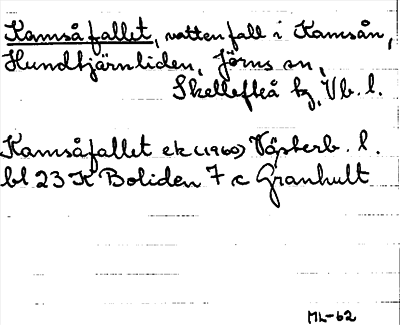 Kamsåfallet, vattenfall i Kamsån,
Hundtjärnliden, Jörns sn,
Skellefteå kg, Vb. l.
Kamsåfallet ek (1960) Västerb. l.
bl 23 K Boliden 7 c Granhult
ML-62